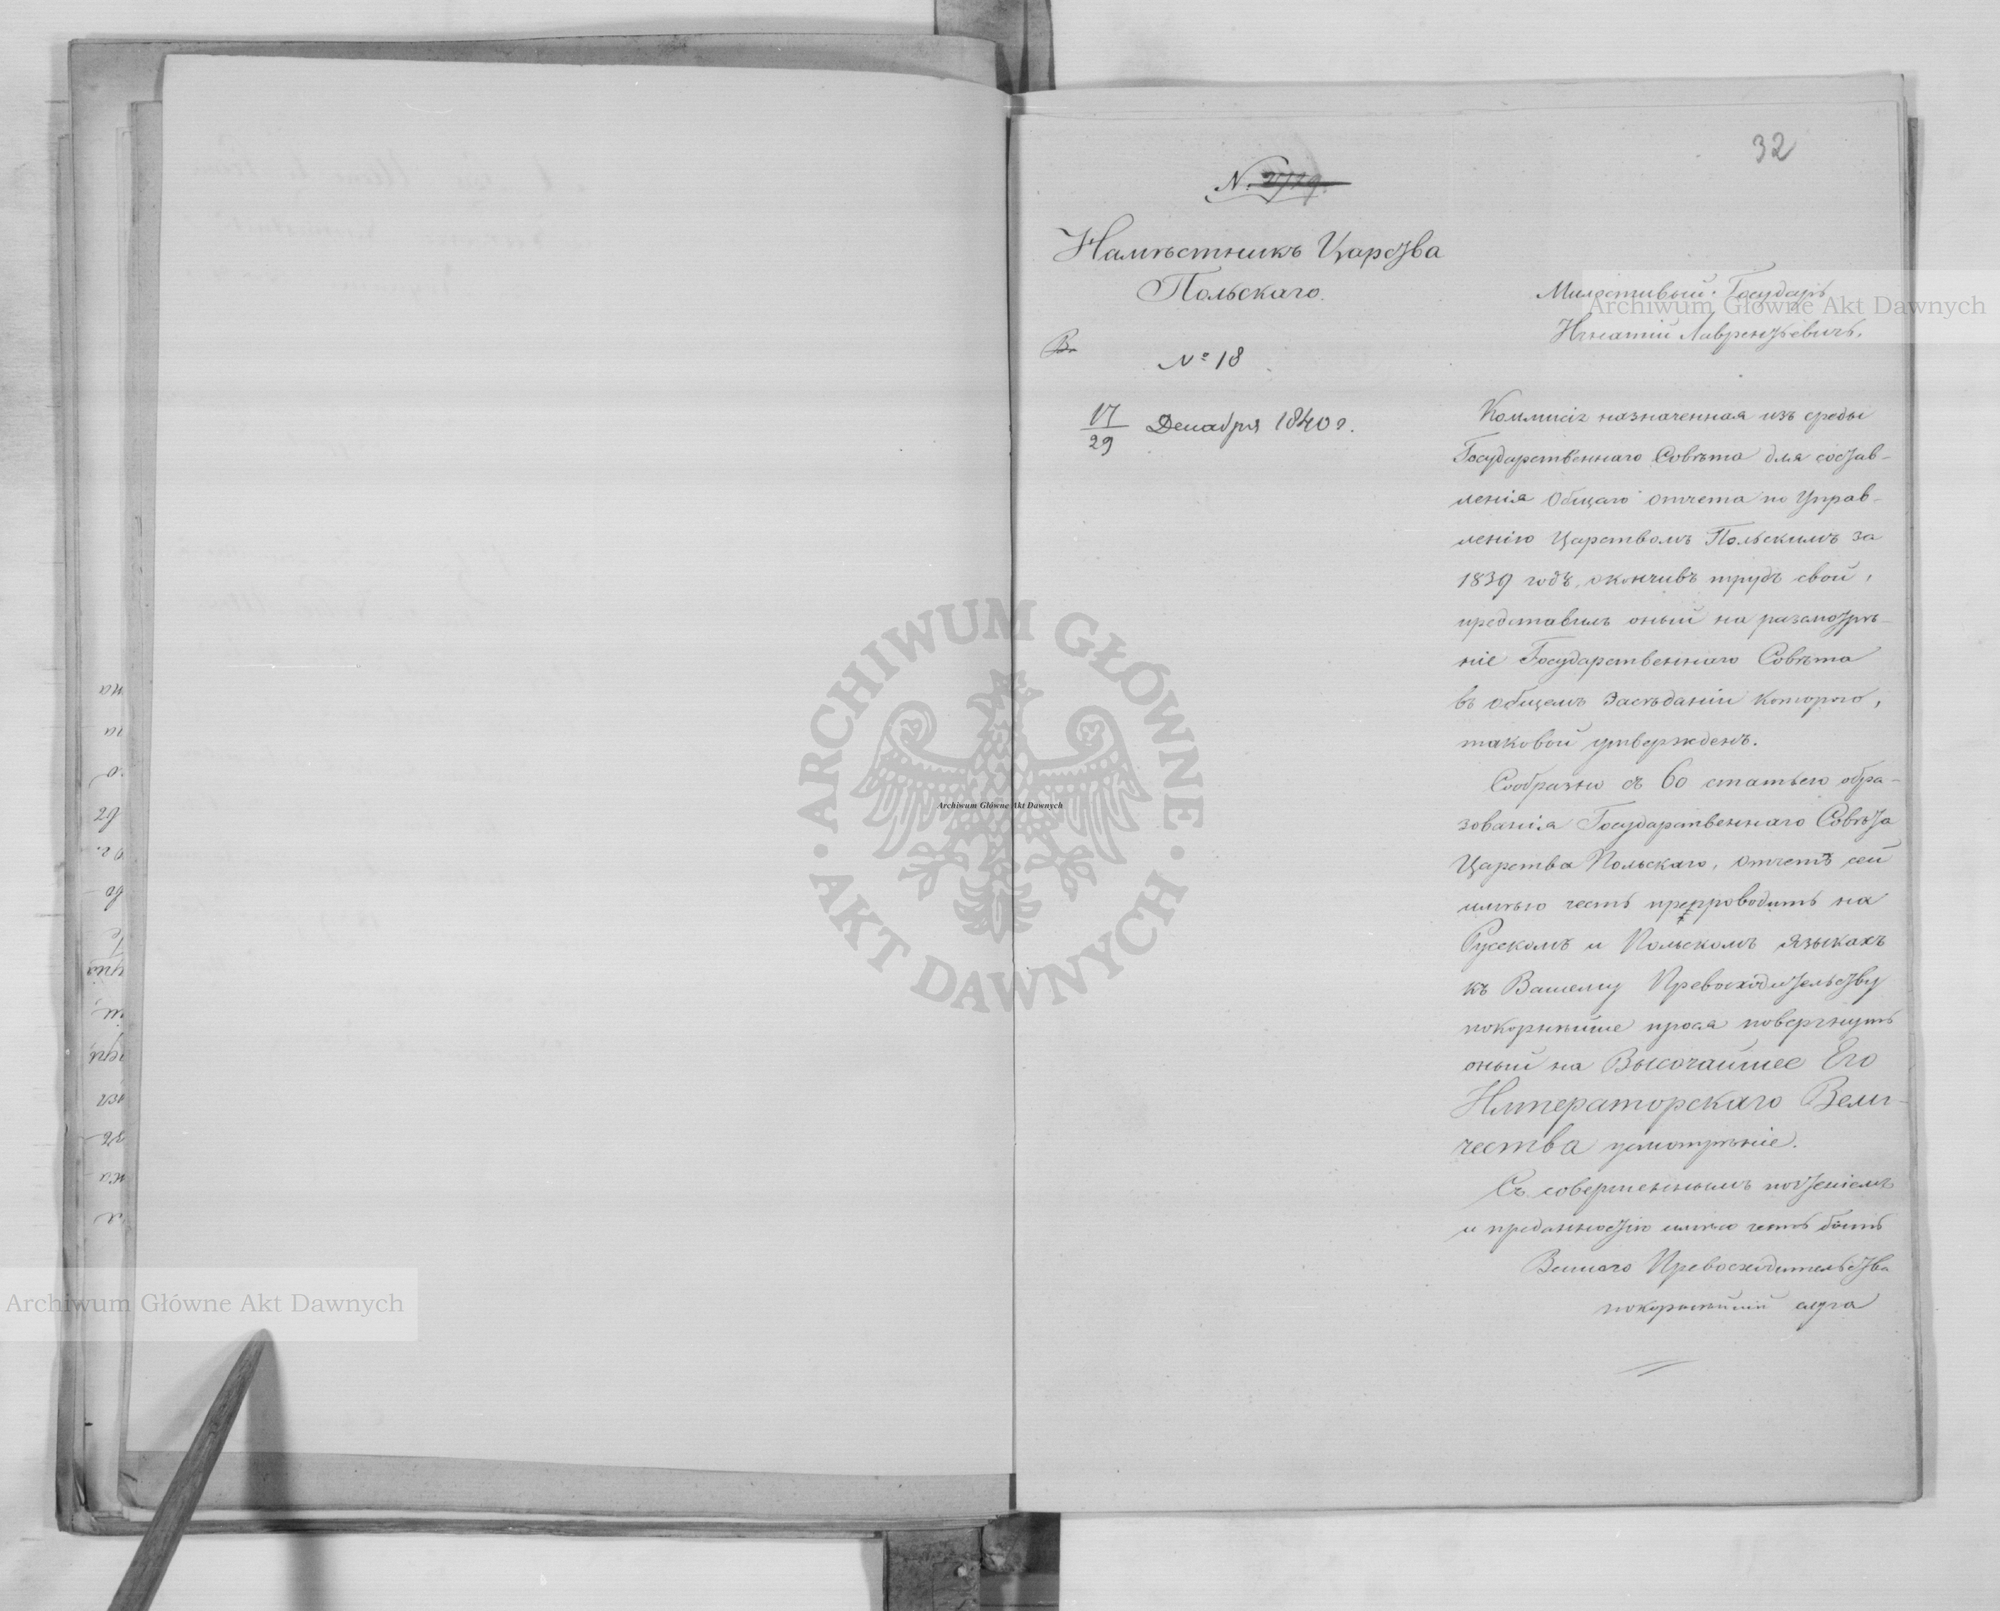 32
N.
Намѣстникъ Царства
Польскаго.
В.
№ 18
17/29 Декабря 1840 г.
Милостивый Государь
Игнатій Лаврентьевичъ.
Коммисія назначенная изъ среды
Государственнаго Совѣта для состав-
ленія Общаго отчета по Управ-
ленію Царствомъ Польскимъ за
1839 годъ, окончивъ трудъ свой,
представила оный на разсмотрѣ-
ніе Государственнаго Совѣта
въ общемъ Засѣданіи котораго,
таковой утвержденъ.
Сообразно съ 60 статьею обра-
зованія Государственнаго Совѣта
Царства Польскаго, отчетъ сей
имѣю честь препроводить на
Русскомъ и Польскомъ языкахъ
къ Вашему Превосходительству
покорнѣйше прося повергнуть
оный на Высочайшее Его
Императорскаго Вели-
чества усмотрѣніе.
Съ совершеннымъ почтеніемъ
и преданностію имѣю честь быть
Вашего Превосходительства
покорнѣйшій слуга
ARCHIWUM GŁÓWNE · AKT DAWNYCH ·
Archiwum Główne Akt Dawnych
Archiwum Główne Akt Dawnych
Archiwum Główne Akt Dawnych